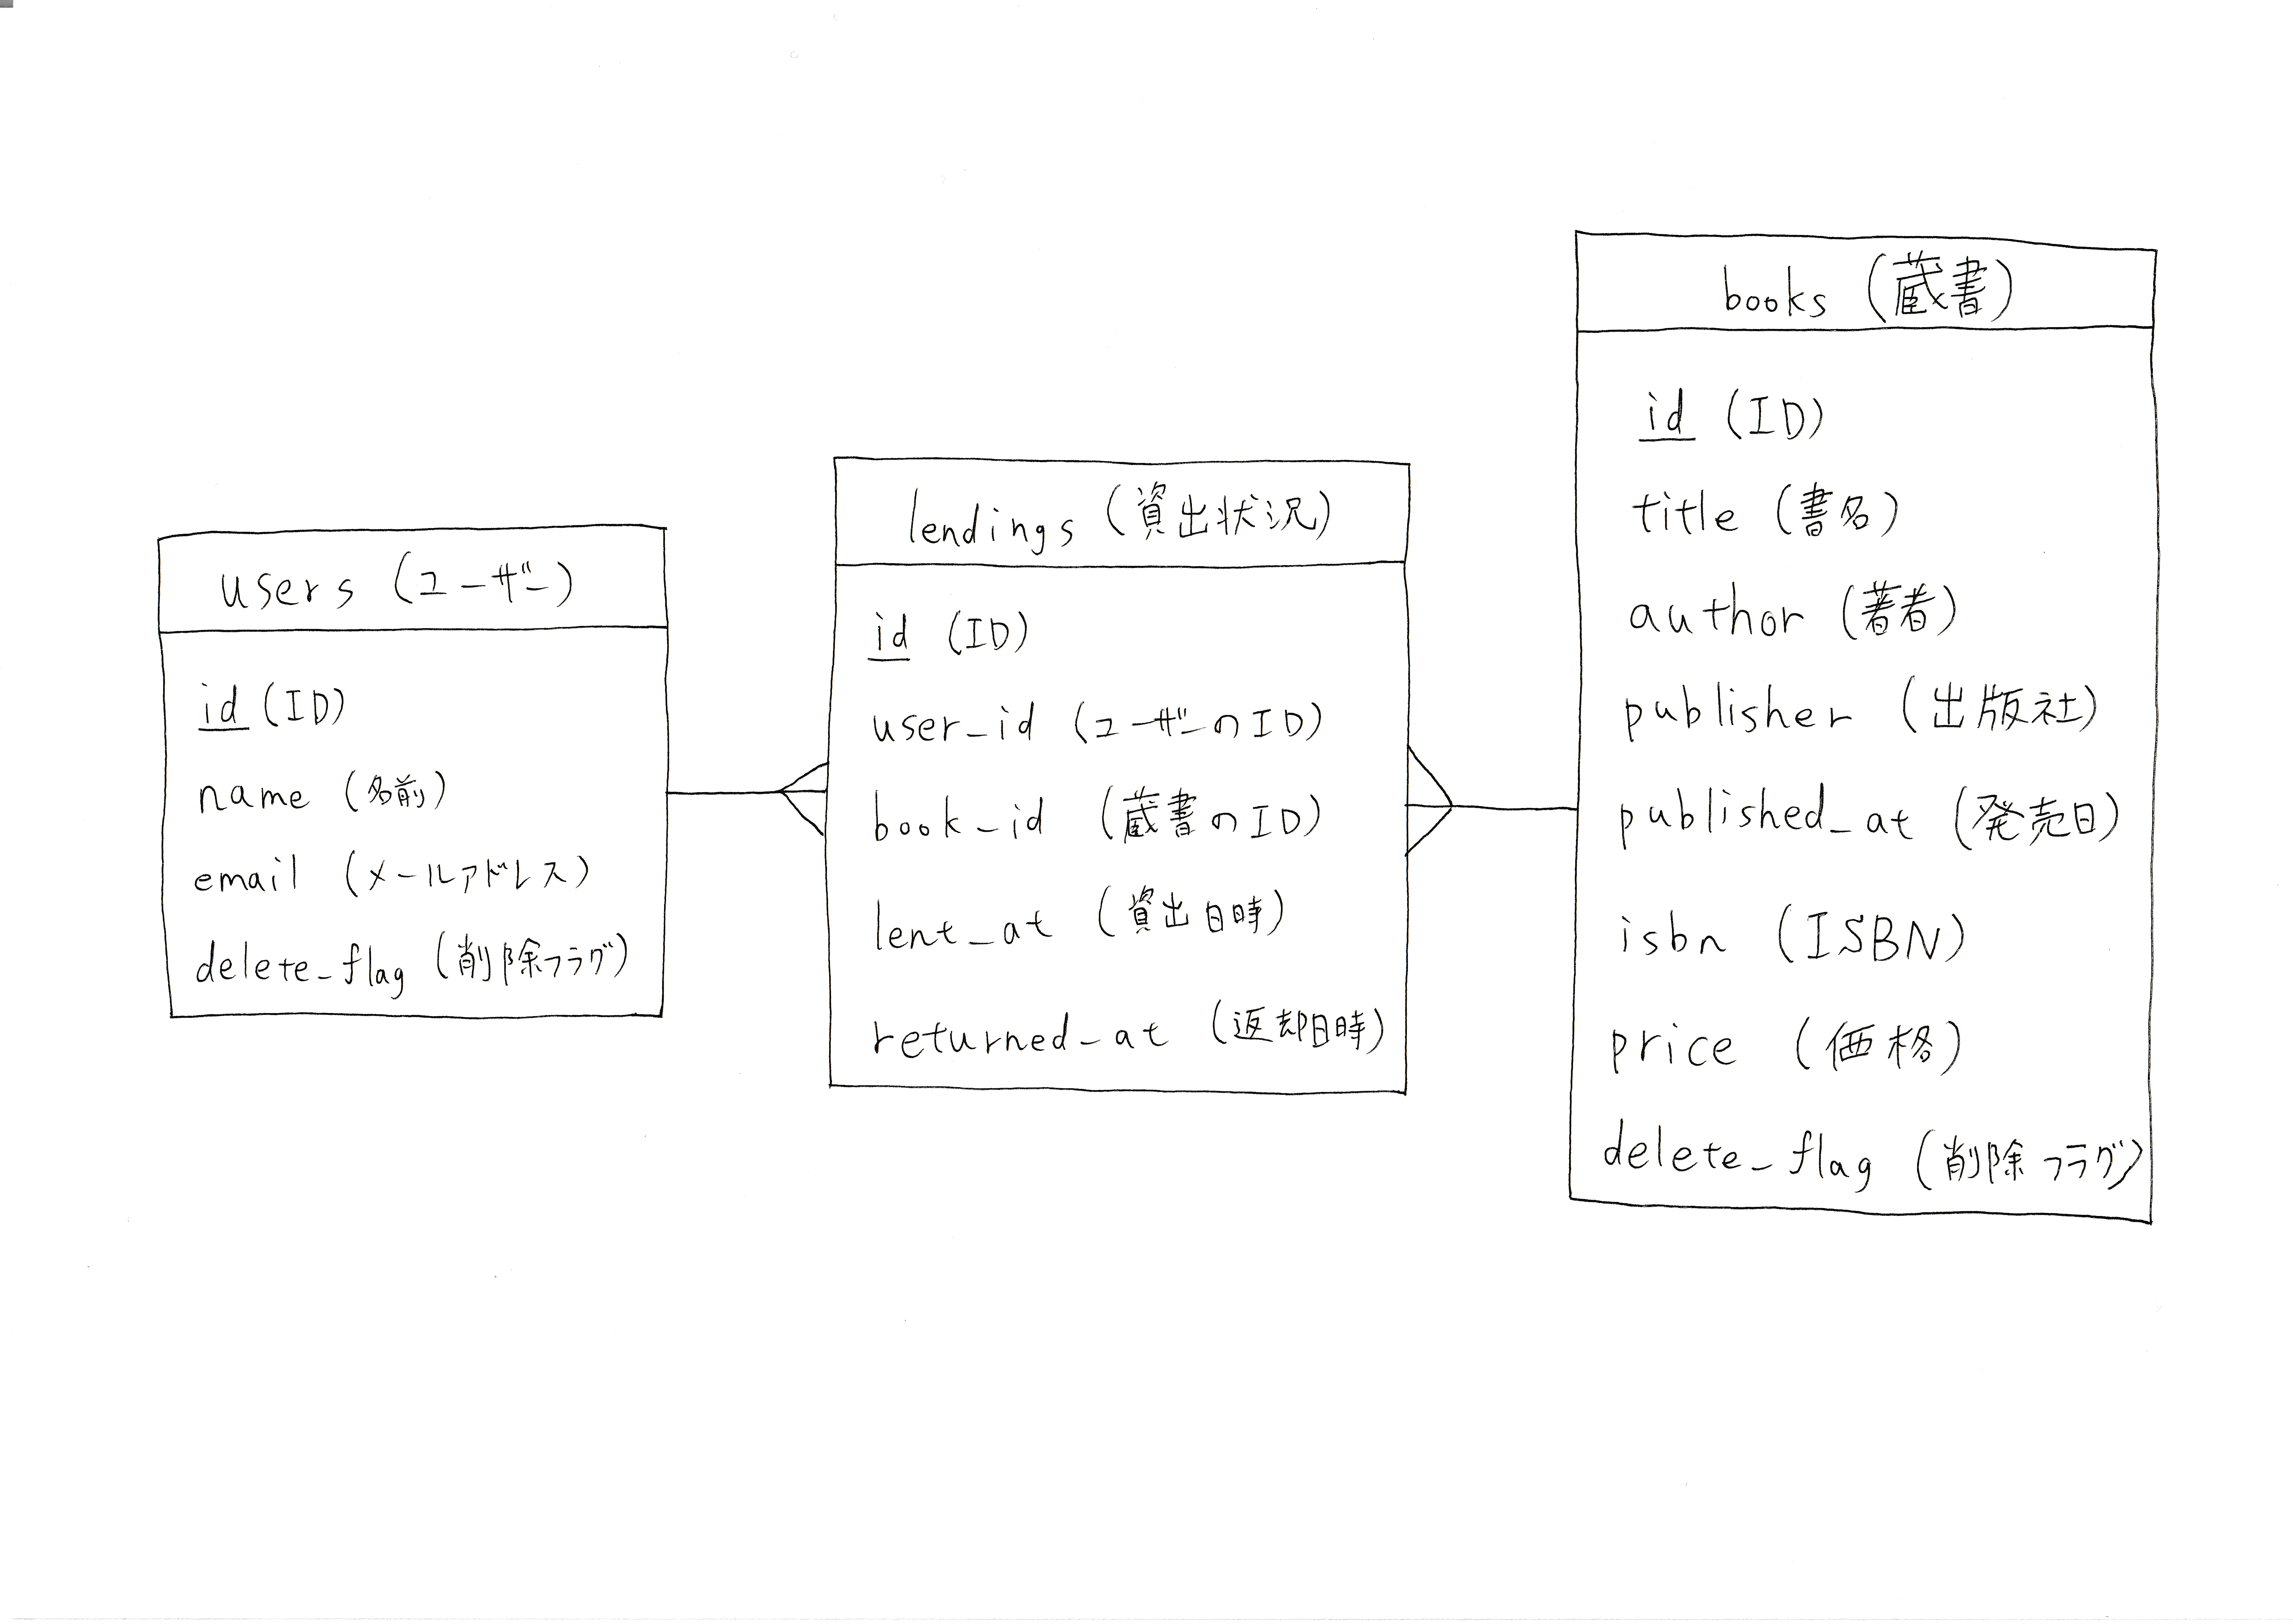 users (ユーザー)
id (ID)
name (名前)
email (メールアドレス)
delete_flag (削除フラグ)
lendings (資出状況)
id (ID)
user_id (ユーザーのID)
book_id (蔵書のID)
lent_at (資出日時)
returned_at (返却日時)
books (蔵書)
id (ID)
title (書名)
author (著者)
publisher (出版社)
published_at (発売日)
isbn (ISBN)
price (価格)
delete_flag (削除フラグ)